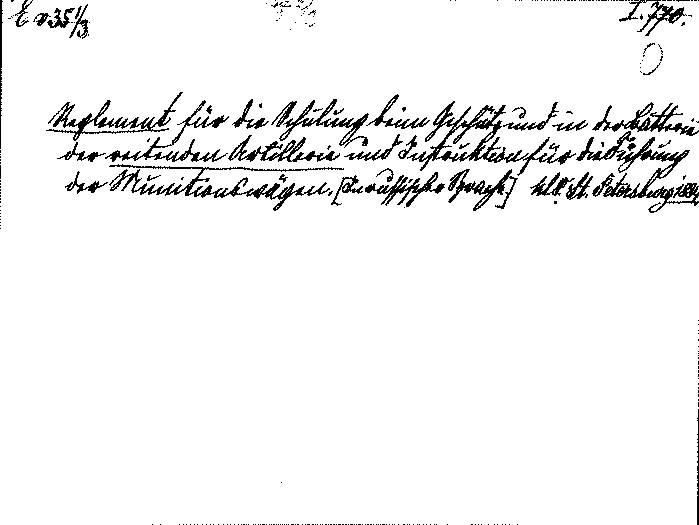 E v 35 1/3
I. 770.
Reglement für die Schulung beim Geschütz und in der Batterie
der reitenden Artillerie und Instruktion für die Führung
der Munitionswägen. [In russischer Sprache] kl. 8. St. Petersburg